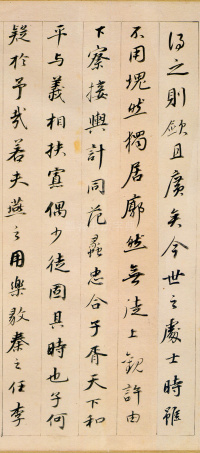 得之則敏且廣矣今世之處士時雖
不用塊然獨居廓然無徒上觀許由
下察接輿計同范蠡忠合子胥天下和
平与義相扶寡偶少徒固其時也子何
疑於予哉若夫燕之用樂毅秦之任李